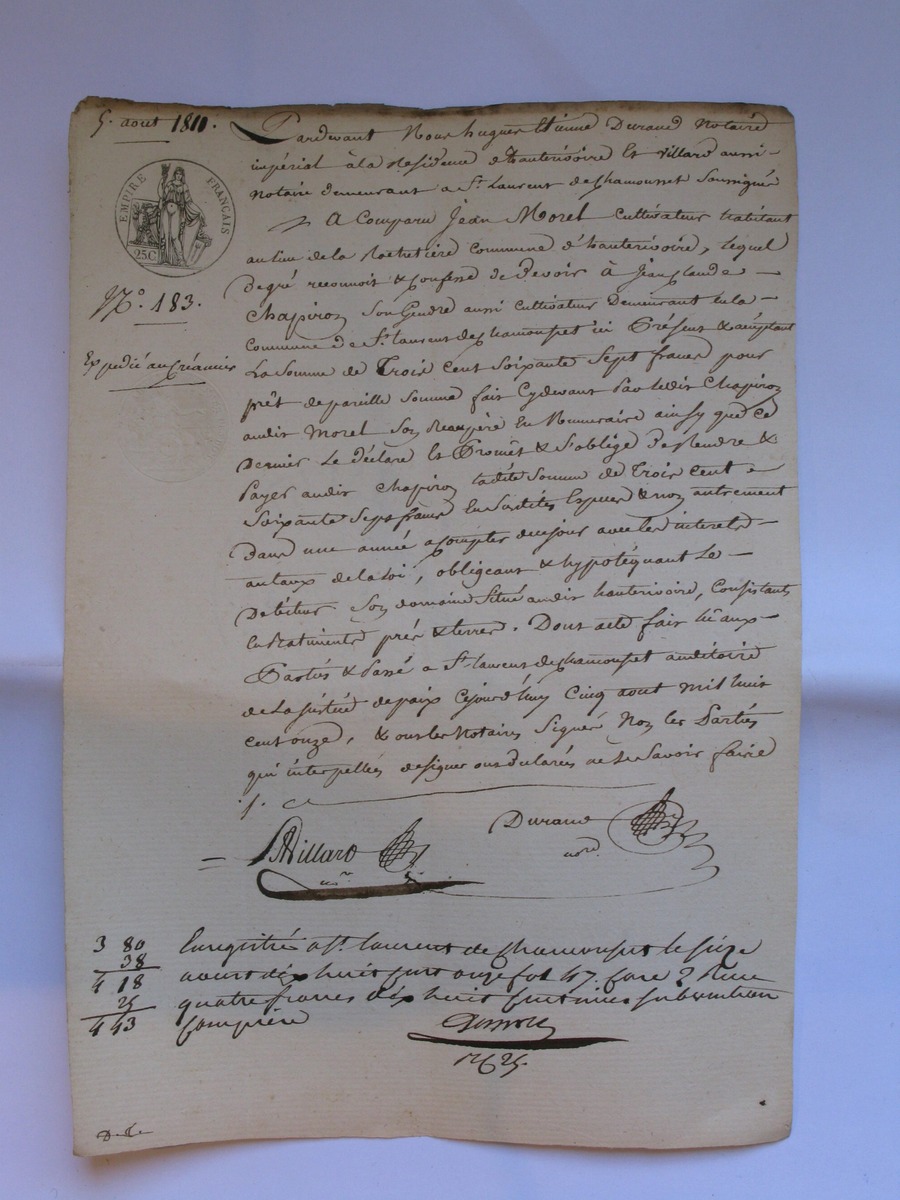 5. aout 1811.
EMPIRE FRANÇAIS
25C
N.° 183.
Expédié au Créancier
Pardevant Nous hugues Etienne Durand Notaire
impérial à la Residence d'hauterivoire Et Villard aussi
Notaire demeurant a St. Laurent de Chamousset Soussignés
A Comparu Jean Morel Cultivateur habitant
au lieu de la commune d'hauterivoire, lequel
De gré reconnoit & Confesse de devoir à Jean Claude
Chapiron Son Gendre aussi Cultivateur Demeurant en la
Commune de St. laurent de Chamousset ici Présent & acceptant
La Somme de Trois Cent Soixante Sept francs pour
prêt de pareille Somme fait Cydevant Par ledit Chapiron
audit Morel Son Beaupère En Numeraire ainsy que ce
Dernier Le déclare Et Promet & S'oblige de Rendre &
Payer audit Chapiron ladite Somme de Trois Cent
Soixante Sept francs En Susdites Espèces & non autrement
dans une année a Compter de ce jour avec les interets
au taux de la Loi, obligeant & hypotéquant Le
Debiteur Son domaine Situé audit hauterivoire, Consistant
En Batiments prés & terres. Dont acte fait Lû aux
Parties & Passé a St. laurent de Chamousset auditoire
de La justice de paix Cejourd'huy Cinq aout mil huit
Cent onze, & ont les Notaires Signés Non les Parties
qui interpellées de Signer ont déclarés ne Le Savoir faire
Villard
nre.
Durand
nore.
3 80
38
4 18
25
4 43
Enregistré a St. laurent de Chamousset le seize
aoust dix huit cent onze fol 47 case 2 Reçu
quatre francs dix huit centimes subvention
comprise
D. L.